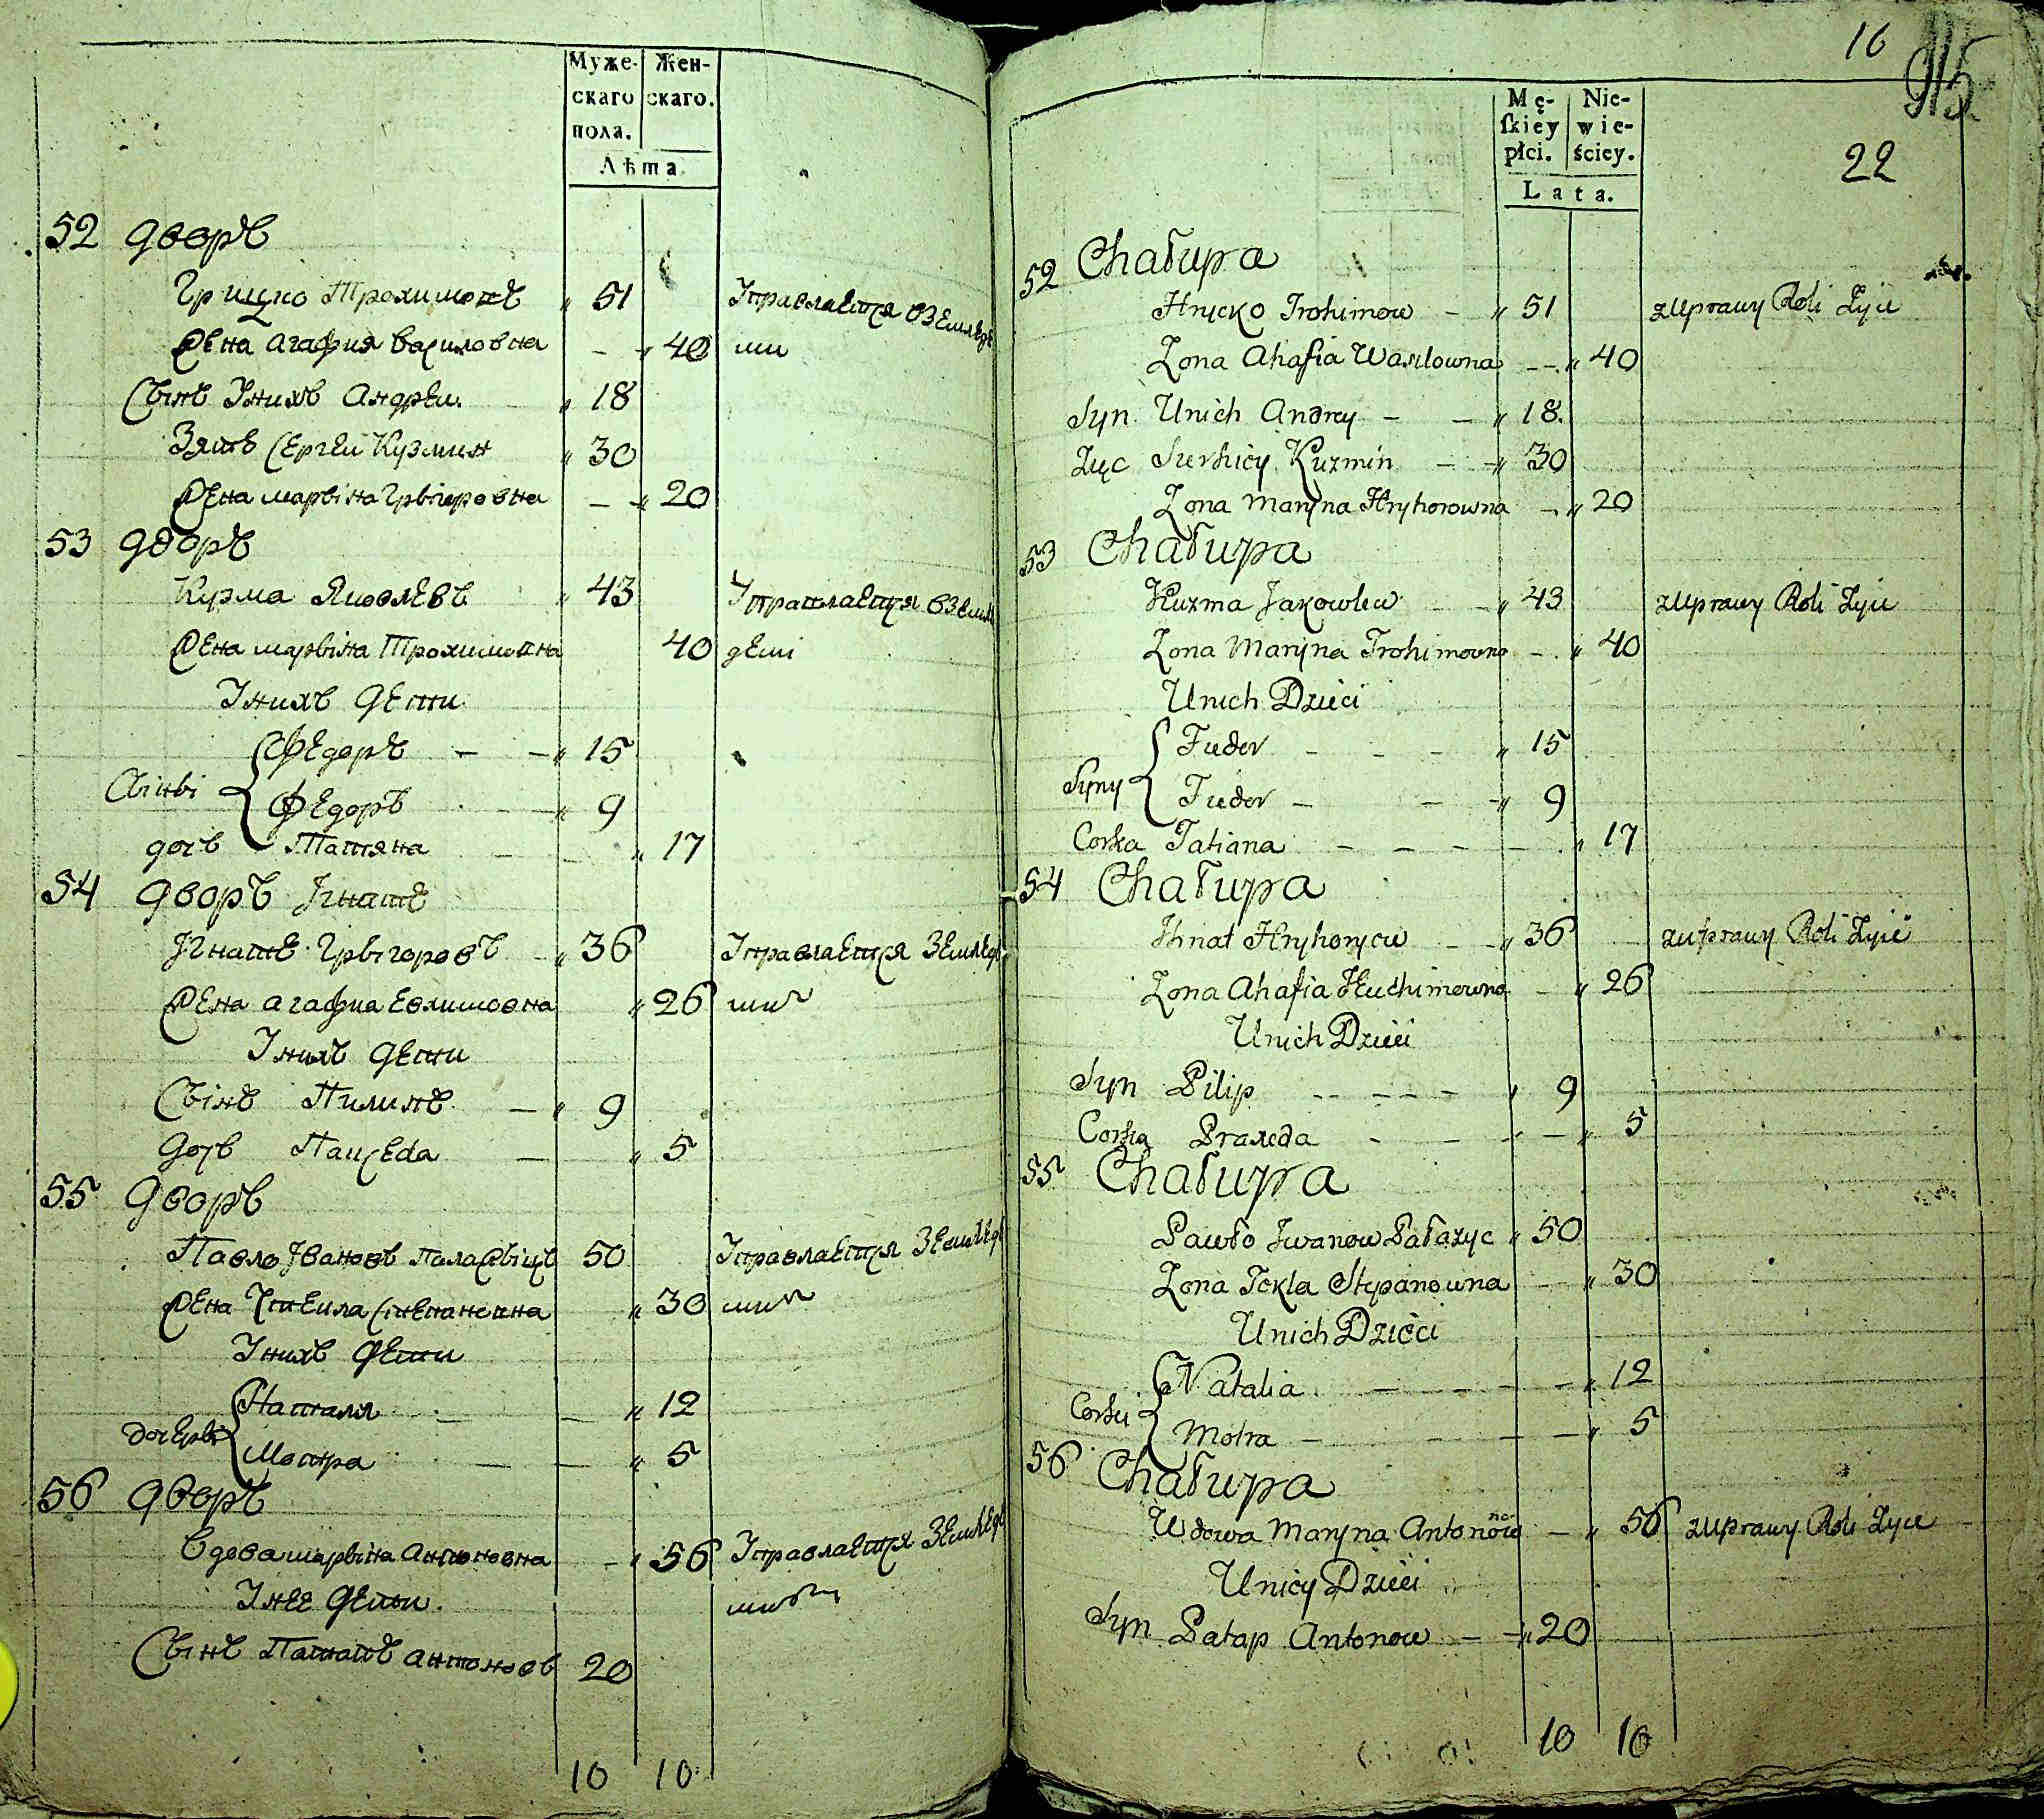 Муже-
скаго
пола.
Жен-
скаго.
Лѣта.
52 Дворъ
Грицко Трохимовъ „ 51 Управлается взємледе
Жєна Агафия Василовна — „ 40 ми
Сынъ Унихъ Андрєи „ 18
Зять Сєргєи Кузмин „ 30
Жєна Марьіна Грьігоровна — „ 20
53 Дворъ
Кузма Яковлєвъ „ 43 Управлаєтся взємл
Жєна Марьіна Трохимовна 40 дєлі
Унихъ Дєти
Сьіньі { Фєдоръ — — „ 15
Фєдоръ — „ 9
дочъ Татяна — — „ 17
54 Дворъ Ігнатъ
Ігнатъ Грьігоровъ „ 36 Управлаєтся Зємлєд
Жєна Агафиа Євхимовна „ 26
Унихъ Дєти
Сьінъ Пилипъ — „ 9
Дочъ Пацєда — „ 5
55 Дворъ
Павло Івановъ 50 Управлаєтся Зємлєд
Жєна Степановна „ 30
Унихъ Дєти
дочєрьі { Наталя — — „ 12
Мотра — — „ 5
56 Дворъ
Вдова Марьіна Антоновна — „ 56 Управлаєтся Зємлєд
Унєє Дєти
Сьінъ Патапъ Антоновъ 20
10 10
16
915
22
Mę-
ſkiey
płci.
Nie-
wie-
ściey.
Lata.
52 Chałupa
Hrycko Trohimow — „ 51 zUprawy Roli Żyie
Zona Ahafia Wasilowna — „ 40
Syn Unich Andrey — — „ 18
Zięc Sierhiey Kuzmin — „ 30
Zona Maryna Hryhorowna — „ 20
53 Chałupa
Kuzma Jakowlew — „ 43 zUprawy Roli Żyie
Zona Maryna Trohimowna — „ 40
Unich Dzieci
Syny { Fiedor — — — „ 15
Fiedor — — „ 9
Corka Tatiana — — — — „ 17
54 Chałupa
Ihnat Hryhoryew — „ 36 zUprawy Roli Żyie
Zona Ahafia Heuchimowna — „ 26
Unich Dzieci
Syn Pilip — — — „ 9
Corka Praxeda — — — „ 5
55 Chałupa
Pawło Jwanow Pałazyc „ 50
Zona Tekla Stepanowna — „ 30
Unich Dzieci
Corki { Natalia — — — — „ 12
Motra — — — — „ 5
56 Chałupa
Wdowa Maryna Antonowna — „ 56 zUprawy Roli Żyie
Unicy Dzieci
Syn Patap Antonow — „ 20
10 10